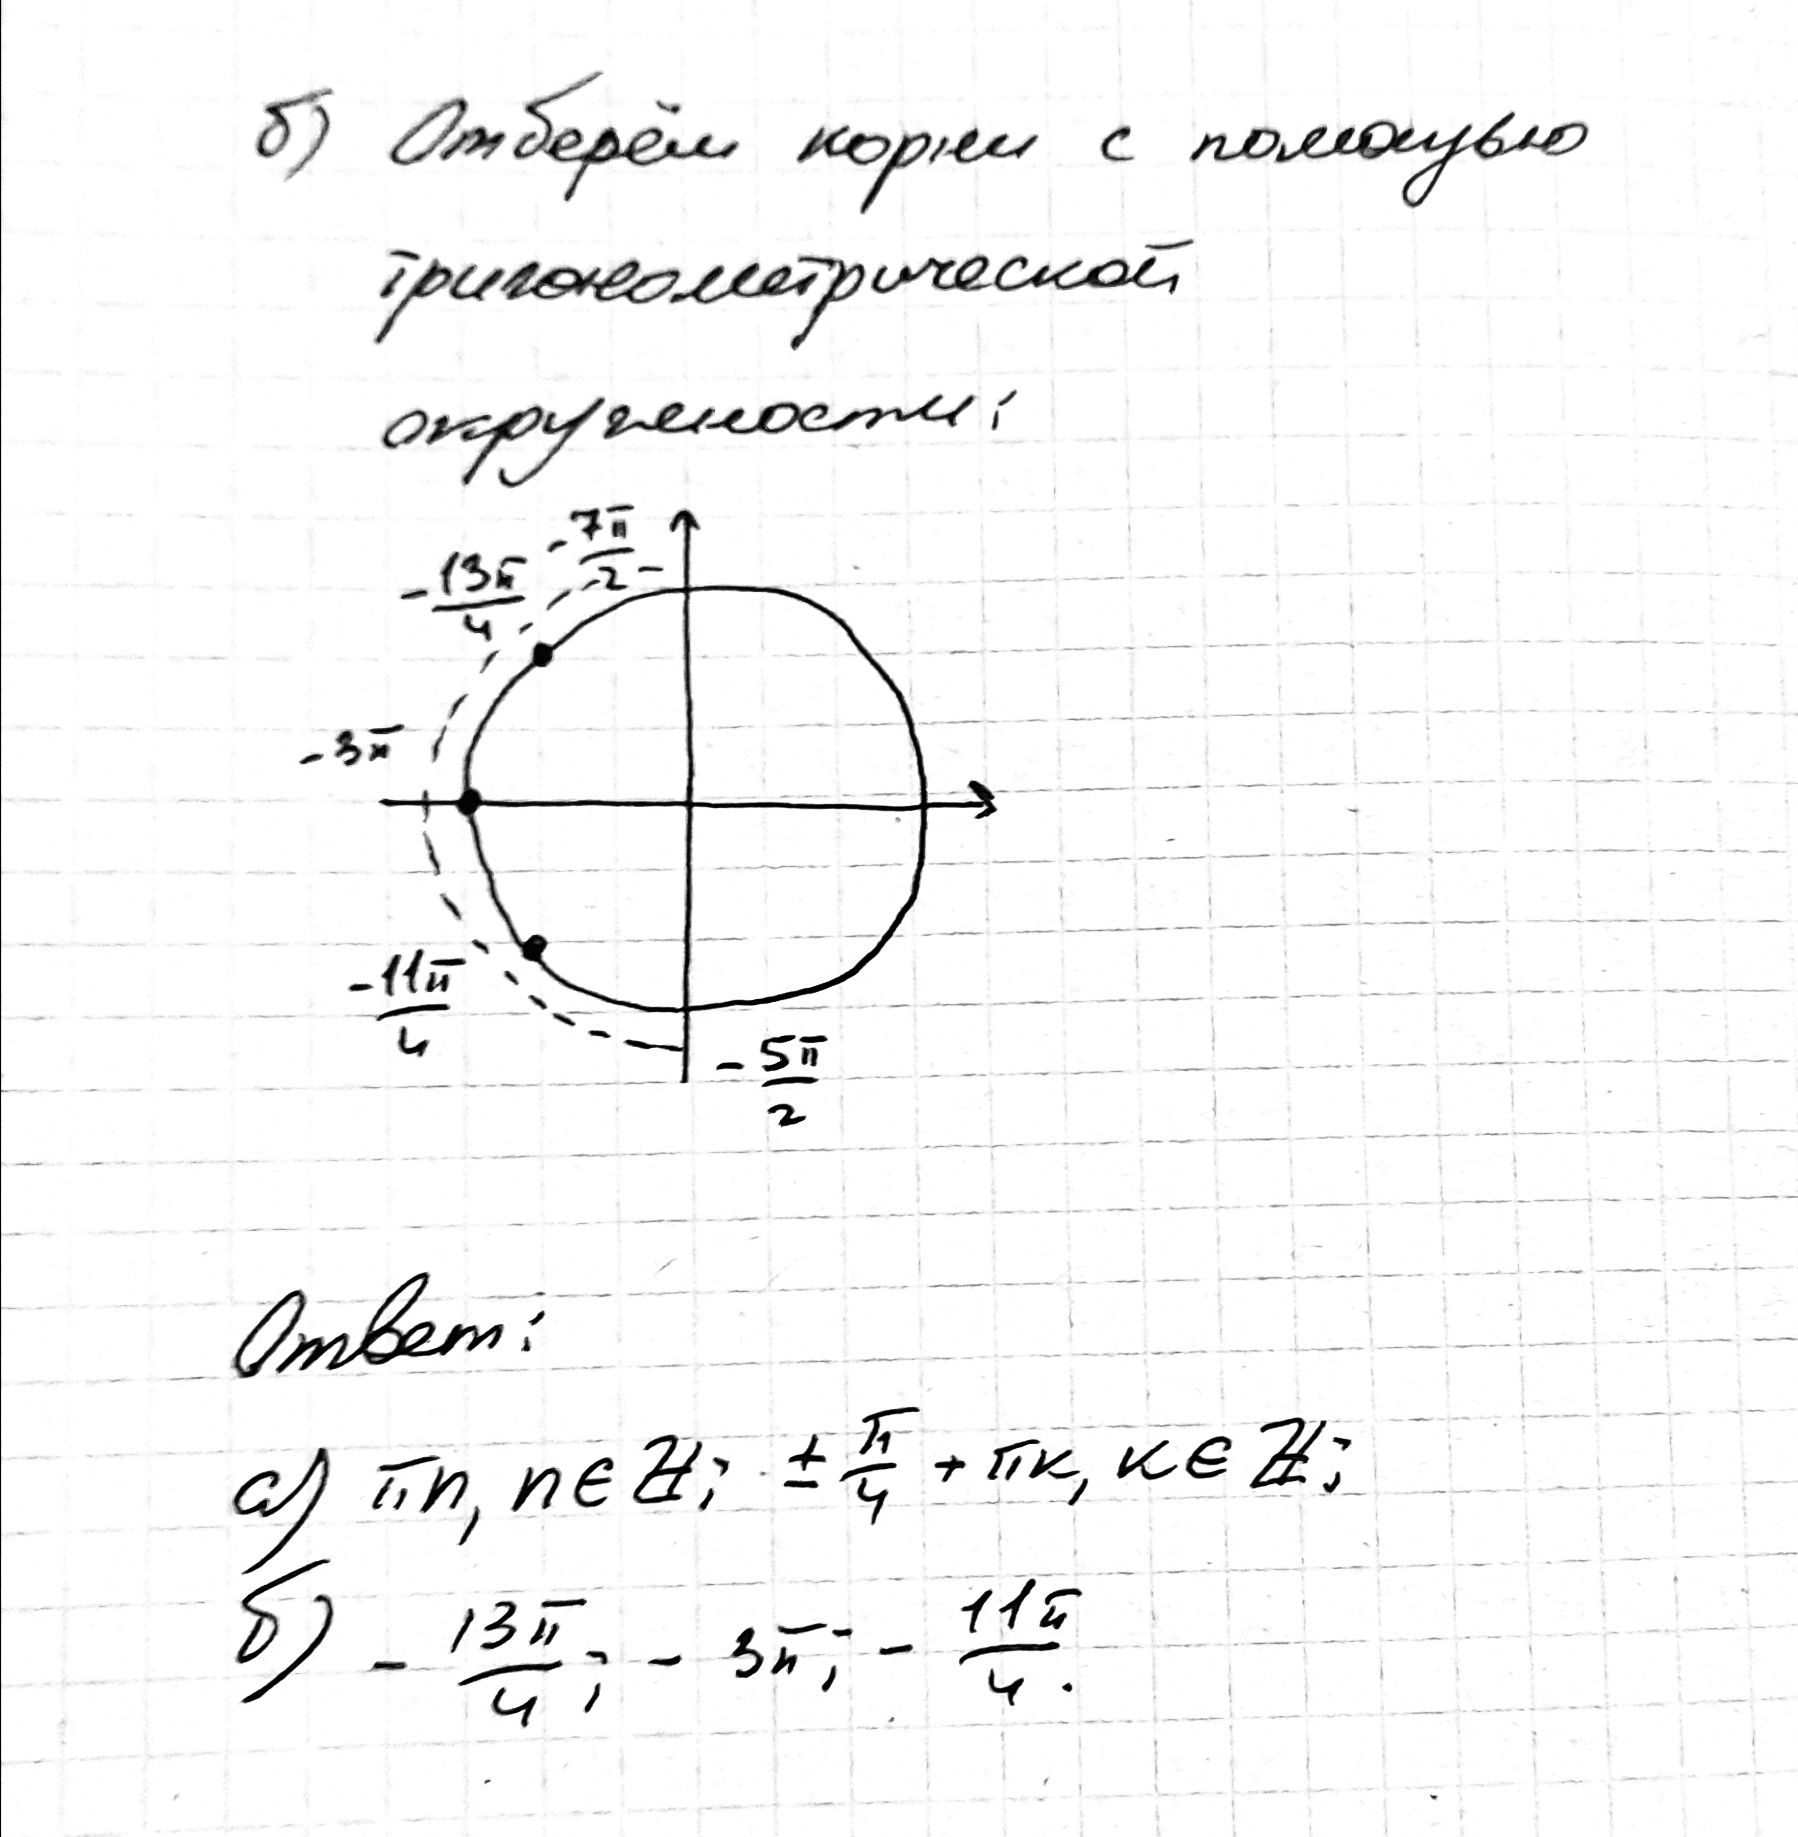 б) Отберём корни с помощью
тригонометрической
окружности:
-7π/2
-13π/4
-3π
-11π/4
-5π/2
Ответ:
а) πn, n∈Z; ±π/4 + πk, k∈Z;
б) -13π/4; -3π; -11π/4.